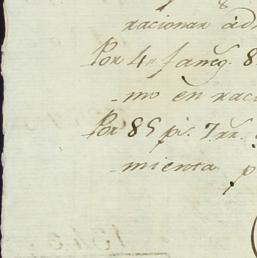 racionar ád
Por 4 „ faneg. 8
mo en raci
Por 85 ps. 7 rr.
mienta p